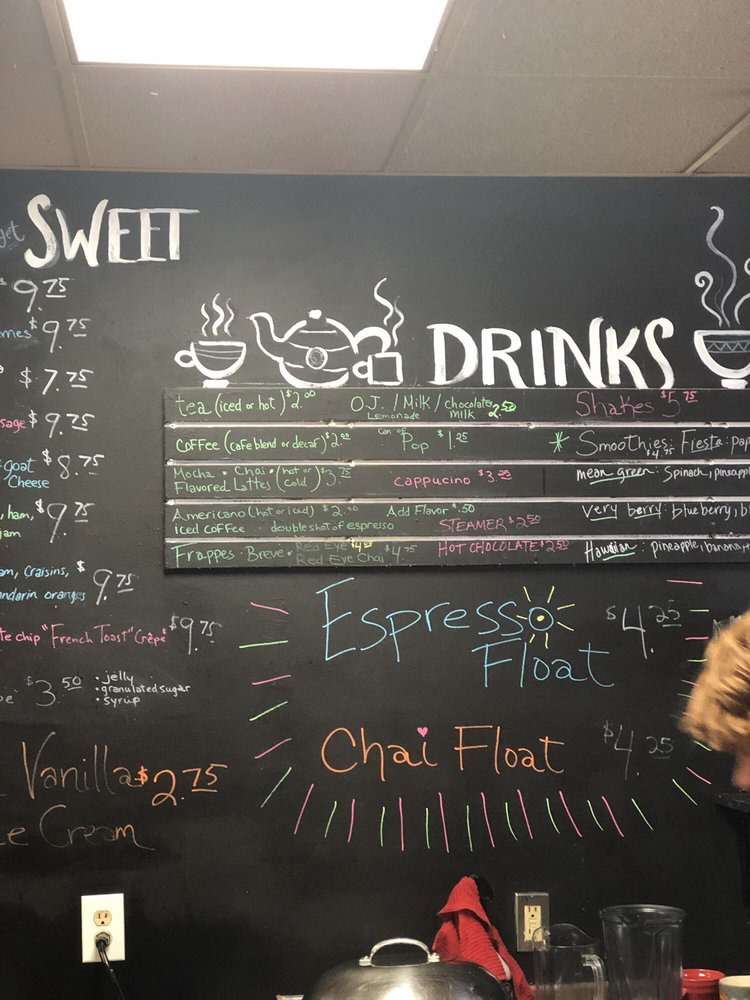 SWEET
get
$9.75
mes $9.75
$7.75
sage $9.75
goat $8.75
Cheese
, ham, $9.75
jam
am, Craisins, $9.75
andarin oranges
te chip "French Toast" Crêpe $9.75
$3.50 • jelly
• granulated sugar
• syrup
Vanilla $2.75
e Cream
DRINKS
tea (iced or hot) $2.00 O.J. / Milk / chocolate milk 2.50 Shakes $5.75
Lemonade
COFFEE (cafe blend or decaf) $2.00 can of Pop $1.25 * Smoothies: Fiesta: pap
$4.75
Mocha • Chai • (hot or cold) $3.75 Cappucino $3.25 mean green: Spinach, pineapp
Flavored Lattes
Americano (hot or iced) $2.00 Add Flavor $.50 Very berry: blueberry, bl
iced coffee double shot of espresso STEAMER $2.50
Frappes • Breve • Red Eye $4.75 HOT CHOCOLATE $2.50 Hawaiian: pineapple, banana, m
Red Eye Chai
Espresso $4.25
Float
Chai Float $4.25